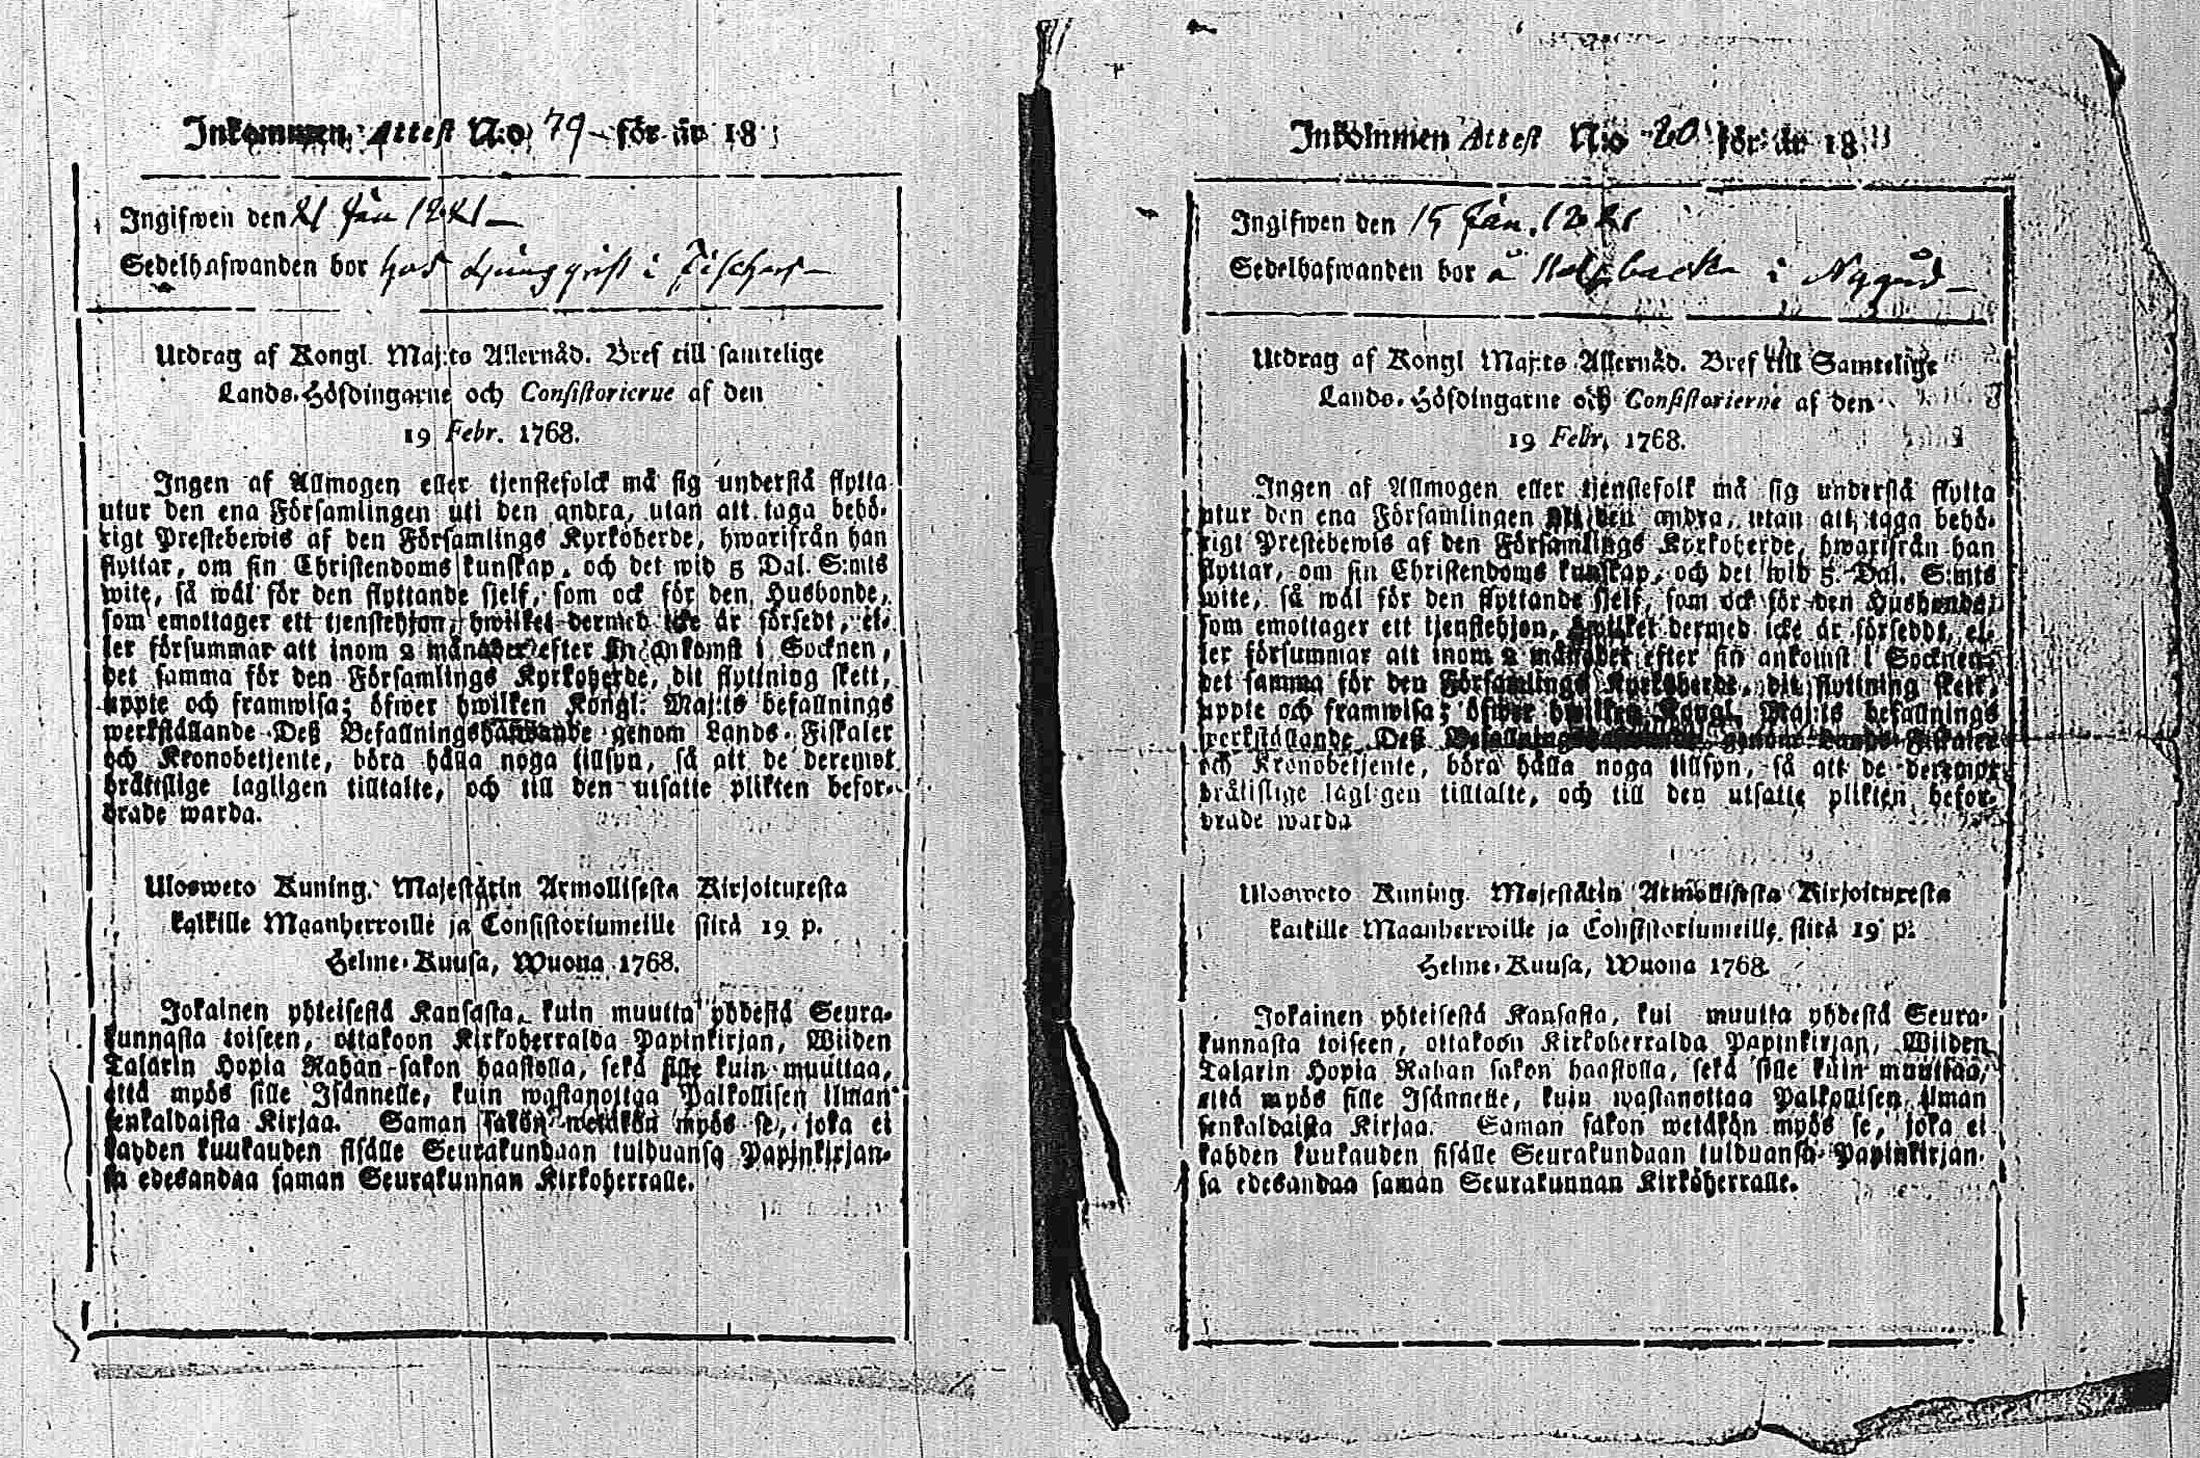 Inkommen Attest N:o 79 för år 18
Ingifwen den 21 Jan 1821
Sedelhafwanden bor hos Ljungqvist i
Utdrag af Kongl. Maj:ts Allernåd. Bref till samtelige
Lands-Höfdingarne och Consistorierne af den
19 Febr. 1768.
Ingen af Allmogen eller tjenstefolck må sig understå flytta
utur den ena Församlingen uti den andra, utan att taga behö-
rigt Prestebewis af den Församlings Kyrkoherde, hwarifrån han
flyttar, om sin Christendoms kunskap, och det wid 5 Dal. S:mts
wite, så wäl för den flyttande sjelf, som ock för den Husbonde,
som emottager ett tjenstehjon, hwilket dermed icke är försedt, el-
ler försummar att inom 2 månader efter sin ankomst i Socknen,
det samma för den Församlings Kyrkoherde, dit flyttning skett,
uppte och framwisa; öfwer hwilken Kongl. Maj:ts befallnings
werkställande Deß Befallningshafwande genom Lands-Fiskaler
och Kronobetjente, böra hålla noga tillsyn, så att de deremot
bråttslige lagligen tilltalte, och till den utsatte plikten befor-
drade warda.
Ulosweto Kuning. Majestätin Armollisesta Kirjoituxesta
kaikille Maanherroille ja Consistoriumeille siitä 19 p.
Helme-Kuusa, Wuona 1768.
Jokainen yhteisestä Kansasta, kuin muutta yhdestä Seura-
kunnasta toiseen, ottakoon Kirkoherralda Papinkirjan, Wiiden
Talarin Hopia Rahan sakon haastolla, sekä sille kuin muuttaa,
että myös sille Isännelle, kuin wastanottaa Palkollisen ilman
senkaldaista Kirjaa. Saman sakon wetäkön myös se, joka ei
kahden kuukauden sisälle Seurakundaan tulduansa Papinkirjan-
sa edesandaa saman Seurakunnan Kirkoherralle.
Inkommen Attest N:o 80 för år 18
Ingifwen den 15 Jan. 1821
Sedelhafwanden bor å i Nygård
Utdrag af Kongl Maj:ts Allernåd. Bref till Samtelige
Lands-Höfdingarne och Consistorierne af den
19 Febr. 1768.
Ingen af Allmogen eller tjenstefolk må sig understå flytta
utur den ena Församlingen uti den andra, utan att taga behö-
rigt Prestebewis af den Församlings Kyrkoherde, hwarifrån han
flyttar, om sin Christendoms kunskap, och det wid 5. Dal. S:mts
wite, så wäl för den flyttande sjelf, som ock för den Husbonde,
som emottager ett tjenstehjon, hwilket dermed icke är förseddt, el-
ler försummar att inom 2 månader efter sin ankomst i Socknen,
det samma för den Församlings Kyrkoherde, dit flyttning skett,
uppte och framwisa; öfwer hwilken Kongl. Maj:ts befallnings
werkställande Deß Befallningshafwande genom Lands-Fiskaler
och Kronobetjente, böra hålla noga tillsyn, så att de deremot
bråttslige lagligen tilltalte, och till den utsatte plikten befor-
drade warda
Ulosweto Kuning. Majestätin Armollisesta Kirjoituxesta
kaikille Maanherroille ja Consistoriumeille siitä 19 p.
Helme-Kuusa, Wuona 1768.
Jokainen yhteisestä Kansasta, kui muutta yhdestä Seura-
kunnasta toiseen, ottakoon Kirkoherralda Papinkirjan, Wiiden
Talarin Hopia Rahan sakon haastolla, sekä sille kuin muuttaa,
että myös sille Isännelle, kuin wastanottaa Palkollisen ilman
senkaldaista Kirjaa. Saman sakon wetäkön myös se, joka ei
kahden kuukauden sisälle Seurakundaan tulduansa Papinkirjan-
sa edesandaa saman Seurakunnan Kirköherralle.